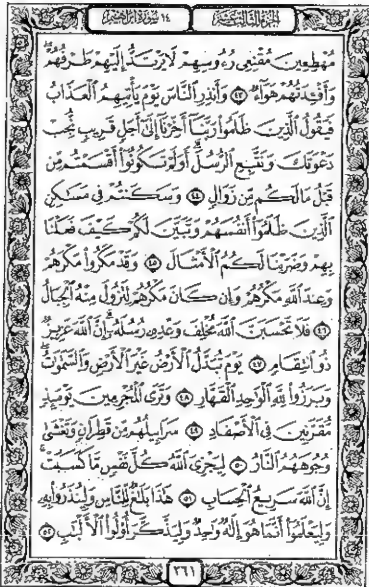 سورة ابراهيم ١٤
الجزء الثالث عشر
مُهْطِعِينَ مُقْنِعِى رُءُوسِهِمْ لَا يَرْتَدُّ إِلَيْهِمْ طَرْفُهُمْ
وَأَفْـِٔدَتُهُمْ هَوَآءٌ ۝٤٣ وَأَنذِرِ ٱلنَّاسَ يَوْمَ يَأْتِيهِمُ ٱلْعَذَابُ
فَيَقُولُ ٱلَّذِينَ ظَلَمُوا۟ رَبَّنَآ أَخِّرْنَآ إِلَىٰٓ أَجَلٍ قَرِيبٍ نُّجِبْ
دَعْوَتَكَ وَنَتَّبِعِ ٱلرُّسُلَ أَوَلَمْ تَكُونُوٓا۟ أَقْسَمْتُم مِّن
قَبْلُ مَا لَكُم مِّن زَوَالٍ ۝٤٤ وَسَكَنتُمْ فِى مَسَٰكِنِ
ٱلَّذِينَ ظَلَمُوٓا۟ أَنفُسَهُمْ وَتَبَيَّنَ لَكُمْ كَيْفَ فَعَلْنَا
بِهِمْ وَضَرَبْنَا لَكُمُ ٱلْأَمْثَالَ ۝٤٥ وَقَدْ مَكَرُوا۟ مَكْرَهُمْ
وَعِندَ ٱللَّهِ مَكْرُهُمْ وَإِن كَانَ مَكْرُهُمْ لِتَزُولَ مِنْهُ ٱلْجِبَالُ
۝٤٦ فَلَا تَحْسَبَنَّ ٱللَّهَ مُخْلِفَ وَعْدِهِۦ رُسُلَهُۥٓ إِنَّ ٱللَّهَ عَزِيزٌ
ذُو ٱنتِقَامٍ ۝٤٧ يَوْمَ تُبَدَّلُ ٱلْأَرْضُ غَيْرَ ٱلْأَرْضِ وَٱلسَّمَٰوَٰتُ
وَبَرَزُوا۟ لِلَّهِ ٱلْوَٰحِدِ ٱلْقَهَّارِ ۝٤٨ وَتَرَى ٱلْمُجْرِمِينَ يَوْمَئِذٍ
مُّقَرَّنِينَ فِى ٱلْأَصْفَادِ ۝٤٩ سَرَابِيلُهُم مِّن قَطِرَانٍ وَتَغْشَىٰ
وُجُوهَهُمُ ٱلنَّارُ ۝٥٠ لِيَجْزِىَ ٱللَّهُ كُلَّ نَفْسٍ مَّا كَسَبَتْ
إِنَّ ٱللَّهَ سَرِيعُ ٱلْحِسَابِ ۝٥١ هَٰذَا بَلَٰغٌ لِّلنَّاسِ وَلِيُنذَرُوا۟ بِهِۦ
وَلِيَعْلَمُوٓا۟ أَنَّمَا هُوَ إِلَٰهٌ وَٰحِدٌ وَلِيَذَّكَّرَ أُو۟لُوا۟ ٱلْأَلْبَٰبِ ۝٥٢
٢٦١